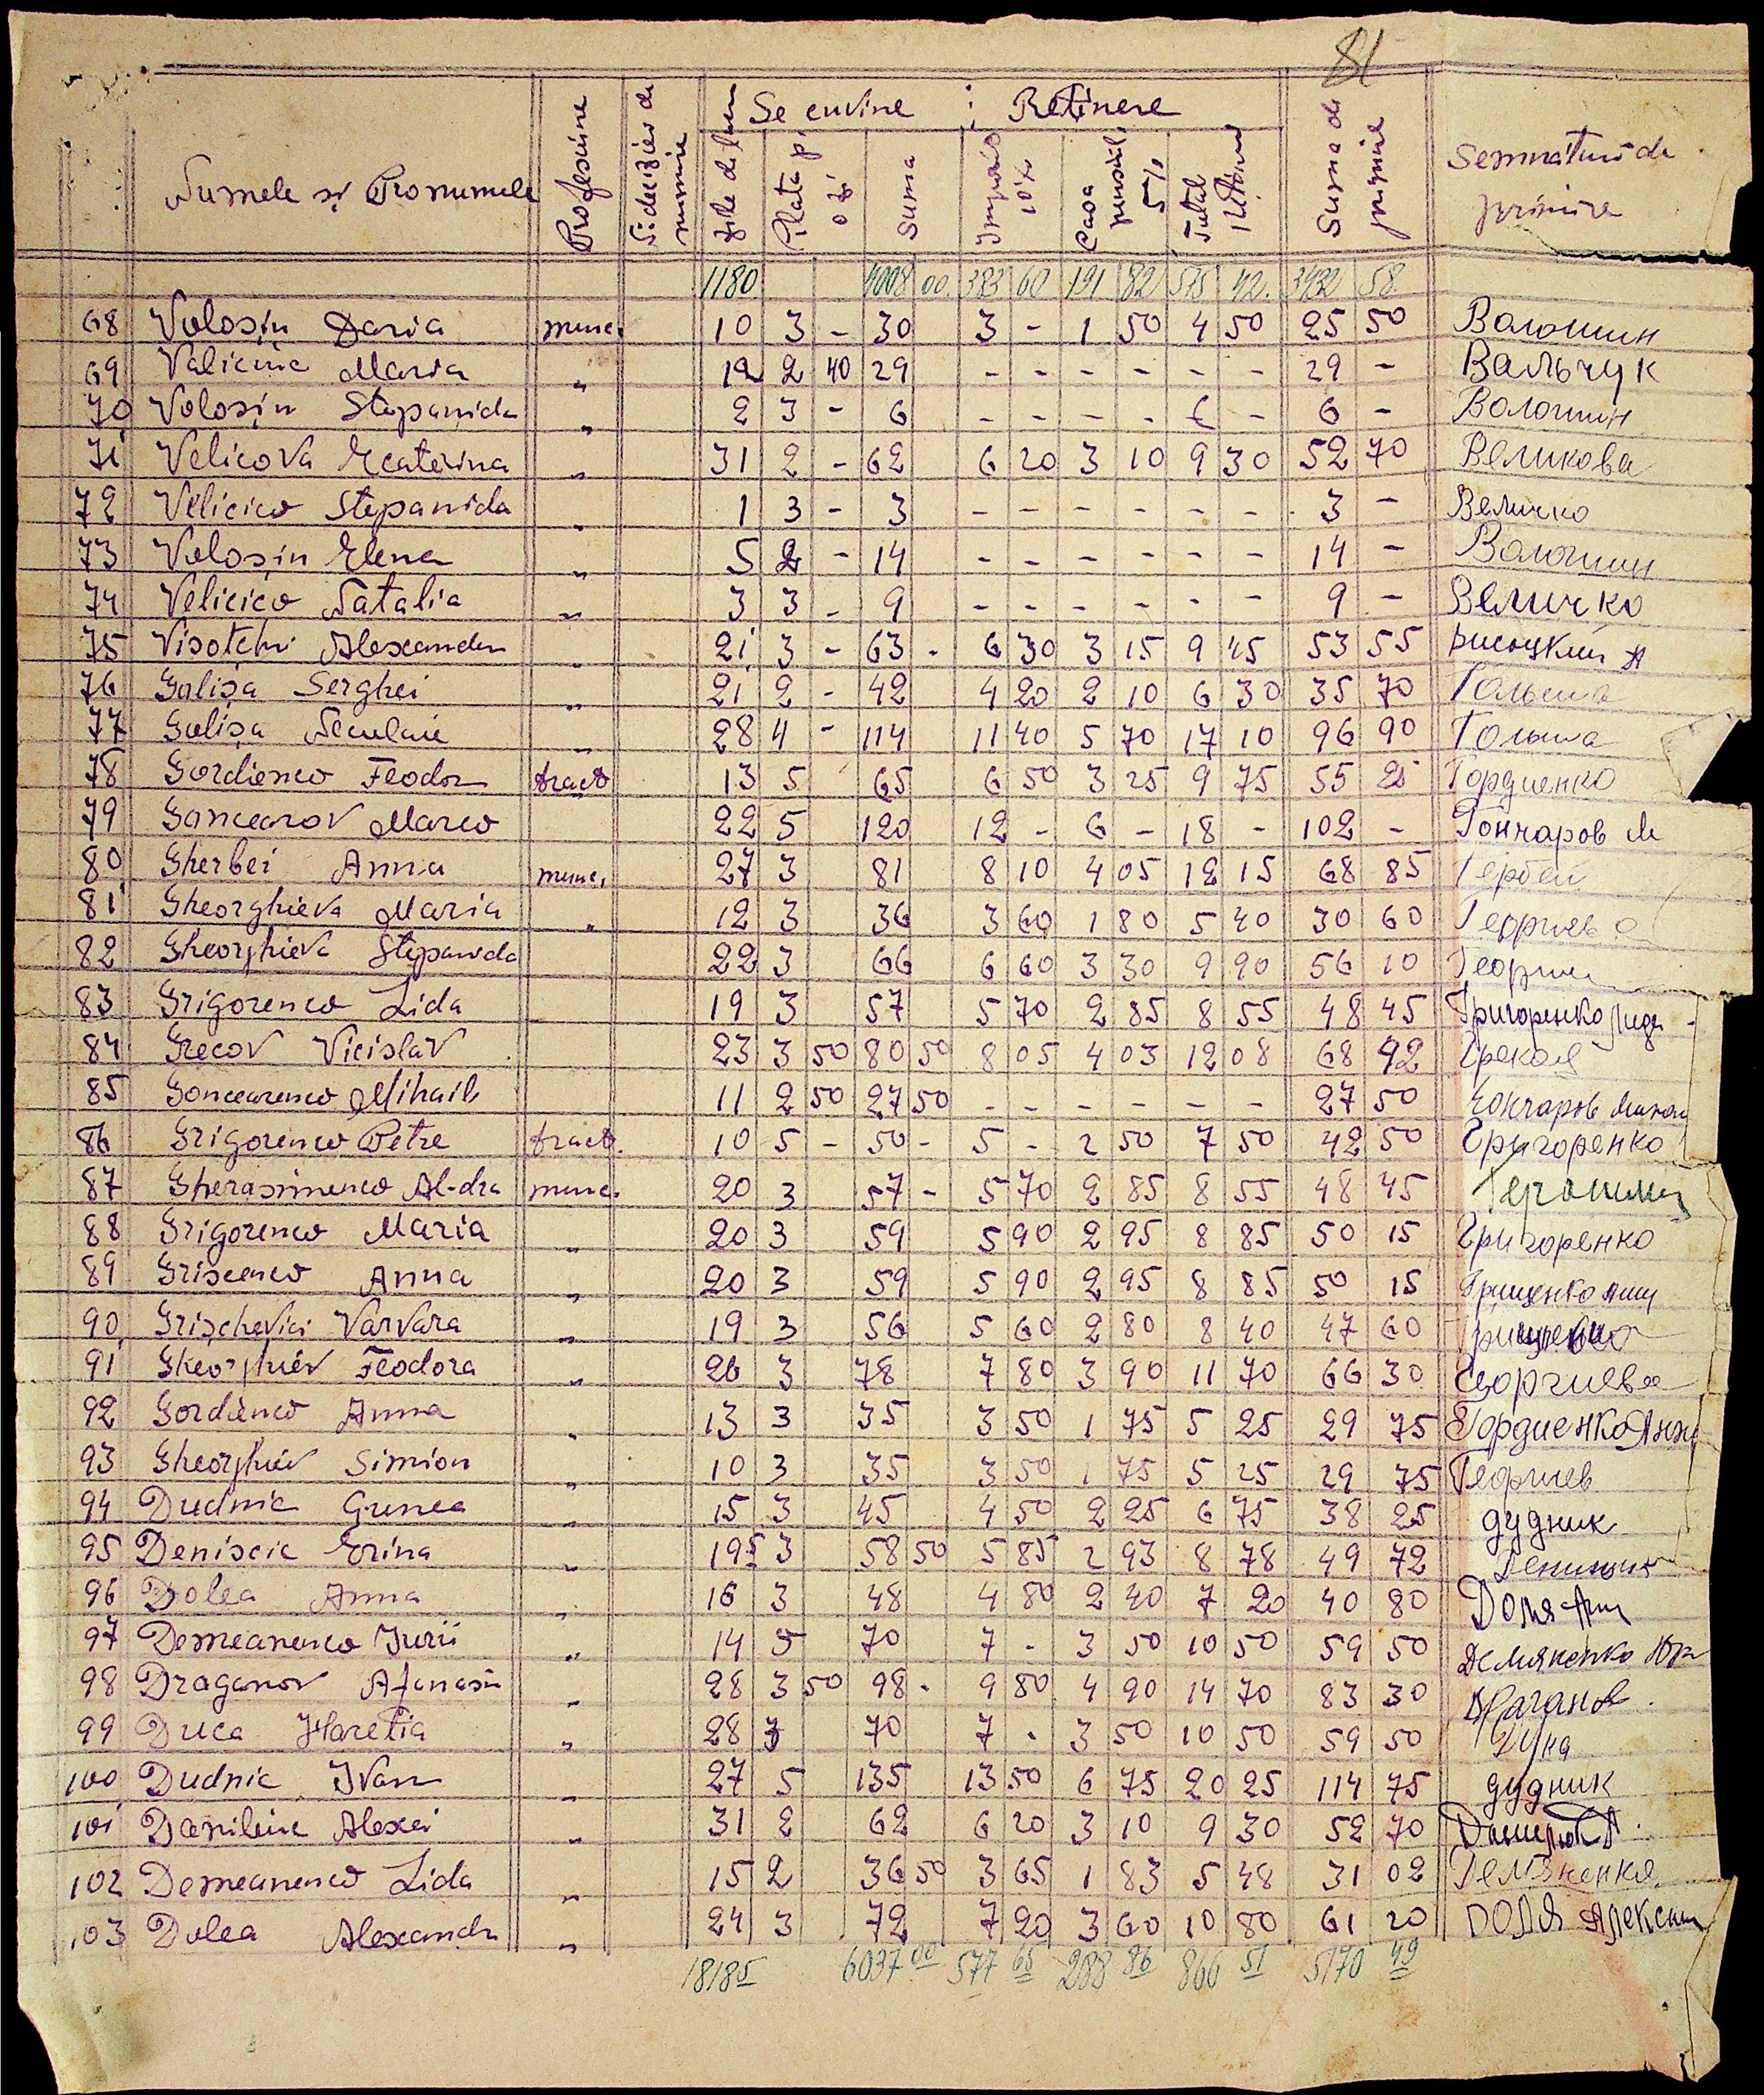 81
Numele și Pronumele Profesiune Zile de Se cuvine Plata Suma Retinere Impozit 10% Casa pensiil 5% Total Suma de primire Semnături de primire
1180 4008 00 383 60 191 82 575 42 3432 58
68 Voloșin Daria munc. 10 3 - 30 3 - 1 50 4 50 25 50 Волошин
69 Maria " 12 2 40 29 - - - - - - 29 - Вальчук
70 Voloșin Stepanida " 2 3 - 6 - - - - - 6 - Волошин
71 Velicova Ecaterina " 31 2 - 62 6 20 3 10 9 30 52 70 Великова
72 Velicico Stepanida " 1 3 - 3 - - - - - - 3 - Величко
73 Voloșin Elena " 5 2 - 14 - - - - - - 14 - Волошин
74 Velicico Natalia " 3 3 - 9 - - - - - - 9 - Величко
75 Visotchi Alexandru " 21 3 - 63 - 6 30 3 15 9 45 53 55
76 Golișa Serghei " 21 2 - 42 4 20 2 10 6 30 35 70 Гольша
77 Golișa Neculaie " 28 4 - 114 11 40 5 70 17 10 96 90 Гольша
78 Gordienco Feodor tract 13 5 65 6 50 3 25 9 75 55 25 Гордиенко
79 Goncearov Marco 22 5 120 12 - 6 - 18 - 102 - Гончаров М
80 Gherbei Anna munc. 27 3 81 8 10 4 05 12 15 68 85 Гербей
81 Gheorghieva Maria " 12 3 36 3 60 1 80 5 40 30 60 Георгиева
82 Gheorghieva Stepanida 22 3 66 6 60 3 30 9 90 56 10
83 Grigorenco Lida 19 3 57 5 70 2 85 8 55 48 45 Григоренко Лида
84 Grecov Vicislav 23 3 50 80 50 8 05 4 03 12 08 68 42 Греков
85 Goncearenco Mihail 11 2 50 27 50 - - - - - - 27 50 Гончаров
86 Grigorenco Petre tract. 10 5 - 50 - 5 - 2 50 7 50 42 50 Григоренко
87 Gherasimenco Al-dra munc. 20 3 57 - 5 70 2 85 8 55 48 45
88 Grigorenco Maria " 20 3 59 5 90 2 95 8 85 50 15 Григоренко
89 Grișcenco Anna " 20 3 59 5 90 2 95 8 85 50 15 Грищенко
90 Grișchevici Varvara " 19 3 56 5 60 2 80 8 40 47 60
91 Gheorghiev Feodora " 26 3 78 7 80 3 90 11 70 66 30 Георгиева
92 Gordienco Anna " 13 3 35 3 50 1 75 5 25 29 75 Гордиенко Анна
93 Gheorghiev Simion " 10 3 35 3 50 1 75 5 25 29 75 Георгиев
94 Dudnic " 15 3 45 4 50 2 25 6 75 38 25 дудник
95 Deniscic Erina " 19 5 3 58 50 5 85 2 93 8 78 49 72
96 Dolea Anna " 16 3 48 4 80 2 40 7 20 40 80 Доля Анн
97 Demeanenco Iurii " 14 5 70 7 - 3 50 10 50 59 50 Демяненко
98 Draganov Afanasii " 28 3 50 98 - 9 80 4 90 14 70 83 30 Драганов
99 Duca Haretia " 28 3 70 7 - 3 50 10 50 59 50 Дука
100 Dudnic Ivan " 27 5 135 13 50 6 75 20 25 114 75 дудник
101 Daniliuc Alexei " 31 2 62 6 20 3 10 9 30 52 70 Данилюк А
102 Demeanenco Lida " 15 2 36 50 3 65 1 83 5 48 31 02 Демяненко
103 Dolea Alexandr " 24 3 72 7 20 3 60 10 80 61 20 ДОЛЯ Алексан
1818 5 6037 00 577 65 288 86 866 51 5170 49